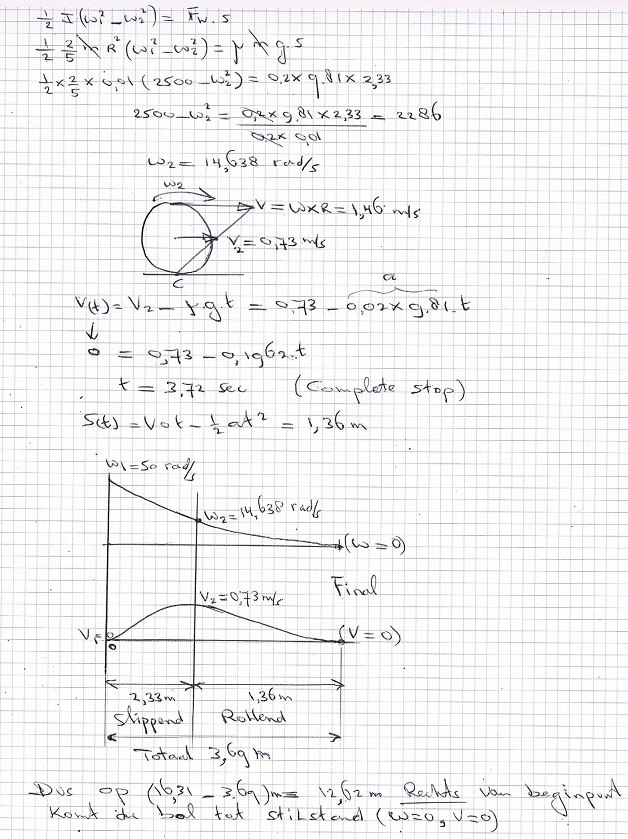 ½ I (ω₁² – ω₂²) = Fw . s
½ 2/5 m R² (ω₁² – ω₂²) = μ m g . s
½ x 2/5 x 0,01 (2500 – ω₂²) = 0,2 x 9.81 x 2,33
2500 – ω₂² = 0,2 x 9,81 x 2,33 / 0,2 x 0,01 = 2286
ω₂ = 14,638 rad/s
ω₂
V = ω x R = 1,46 m/s
V₂ = 0,73 m/s
C
a
V(t) = V₂ – f . g . t = 0,73 – 0,02 x 9.81 . t
0 = 0,73 – 0,1962 . t
t = 3,72 sec (Complete stop)
S(t) = Vot – ½ at² = 1,36 m
ω1 = 50 rad/s
ω₂ = 14,638 rad/s
(ω = 0)
Final
V₂ = 0,73 m/s
V₁ = 0
(V = 0)
0
2,33 m 1,36 m
Slippend Rollend
Totaal 3,69 m
Dus op (16,31 – 3,69) m = 12,62 m Rechts van beginpunt
komt de bal tot stilstand (ω=0, V=0)